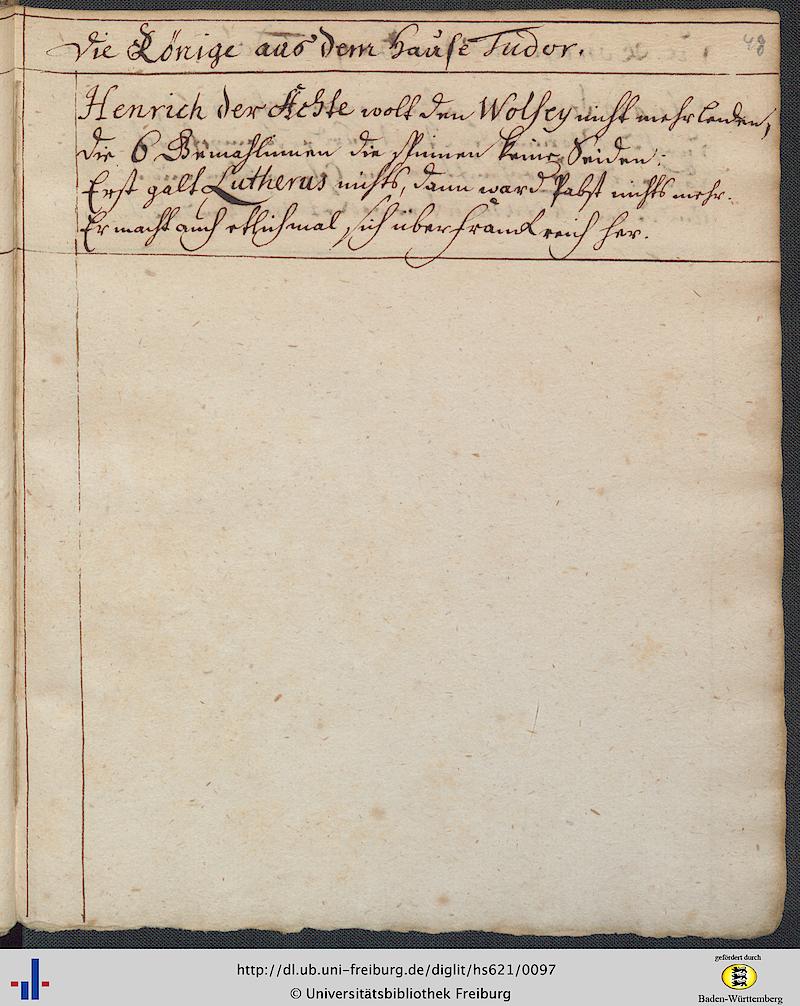 Die Könige aus dem Hause Tudor.
48
Henrich der Achte wolt den Wolsey nicht mehr leiden,
die 6 Gemahlinnen die spinnen keine Seiden.
Erst galt Lutherus nichts, dann ward Pabst nichts mehr.
Er macht auch etlichmal sich über Franckreich her.
http://dl.ub.uni-freiburg.de/diglit/hs621/0097
© Universitätsbibliothek Freiburg
gefördert durch
Baden-Württemberg